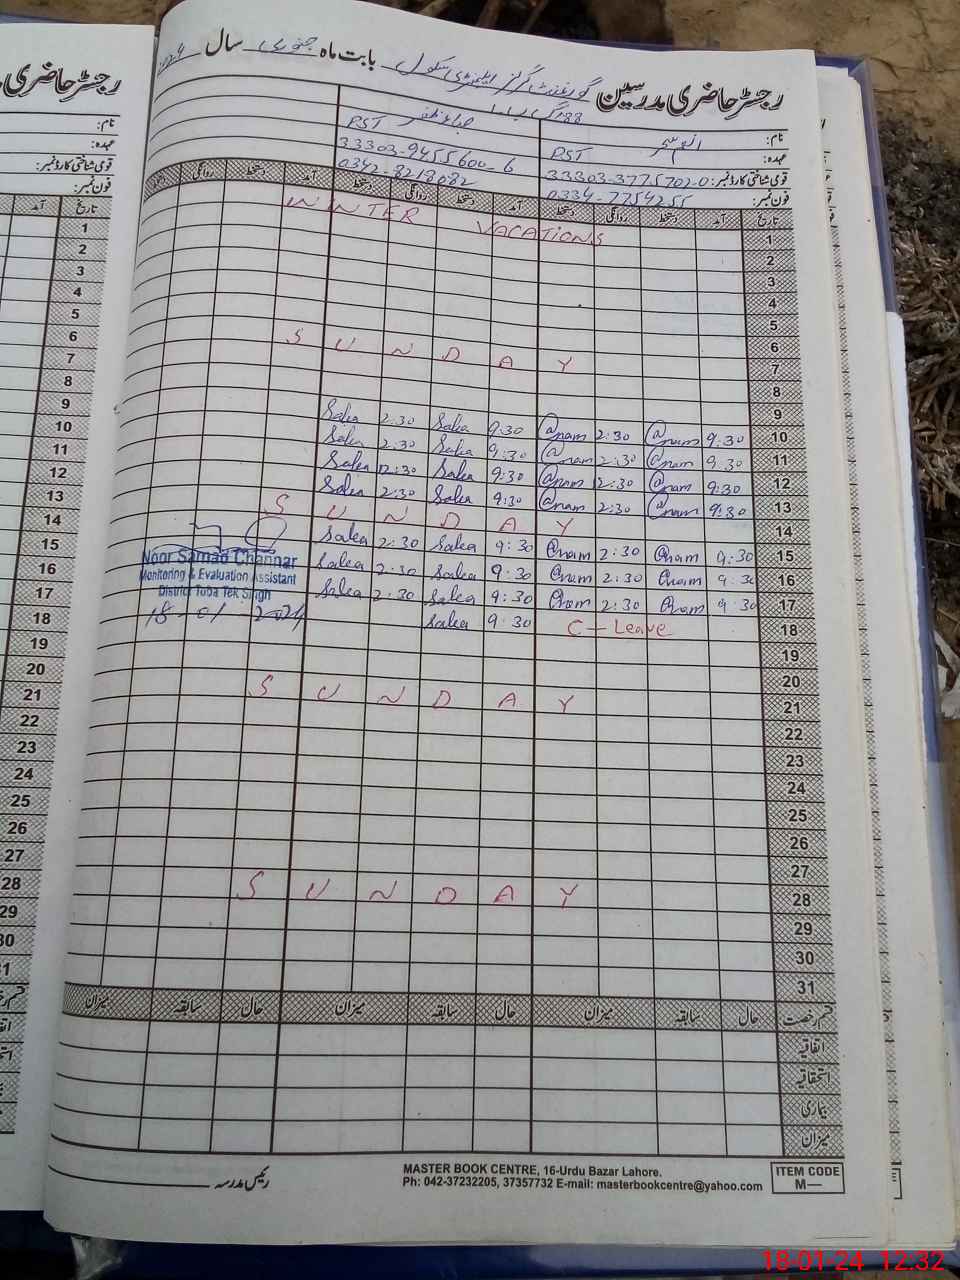 رجسٹر حاضری مدرسین گورنمنٹ گرلز ایلیمنٹری سکول بابت ماہ جنوری سال
188 گ ب
نام:
عہدہ: PST PST
قومی شناختی کارڈ نمبر: 33303-3775702-0 33303-9455600-6
فون نمبر: 0334-7754255 0342-8218082
تاریخ آمد دستخط روانگی دستخط آمد دستخط روانگی دستخط آمد دستخط روانگی دستخط
1 WINTER VACATIONS
2
3
4
5
6
7 S U N D A Y
8
9
10 9:30 @nam 2:30 @nam 9:30 Saba 2:30 Saba
11 9:30 @nam 2:30 @nam 9:30 Saba 2:30 Saba
12 9:30 @nam 2:30 @nam 9:30 Saba 12:30 Saba
13 9:30 @nam 2:30 @nam 9:30 Saba 2:30 Saba
14 S U N D A Y
15 9:30 @nam 2:30 @nam 9:30 Saba 2:30 Saba
16 9:30 @nam 2:30 @nam 9:30 Saba 2:30 Saba
17 9:30 @nam 2:30 @nam 9:30 Saba 2:30 Saba
18 C-Leave 9:30 Saba
Noor Samad Channar
Monitoring & Evaluation Assistant
District Toba Tek Singh
18-01-2024
19
20
21 S U N D A Y
22
23
24
25
26
27
28 S U N D A Y
29
30
31
قسم رخصت حال سابقہ میزان حال سابقہ میزان حال سابقہ میزان
اتفاقیہ
استحقاقیہ
بیماری
میزان
رئیس مدرسہ
MASTER BOOK CENTRE, 16-Urdu Bazar Lahore.
Ph: 042-37232205, 37357732 E-mail: masterbookcentre@yahoo.com
ITEM CODE
M—
رجسٹر حاضری
نام:
عہدہ:
قومی شناختی کارڈ نمبر:
فون نمبر:
تاریخ آمد
1
2
3
4
5
6
7
8
9
10
11
12
13
14
15
16
17
18
19
20
21
22
23
24
25
26
27
28
29
30
31
18-01-24 12:32